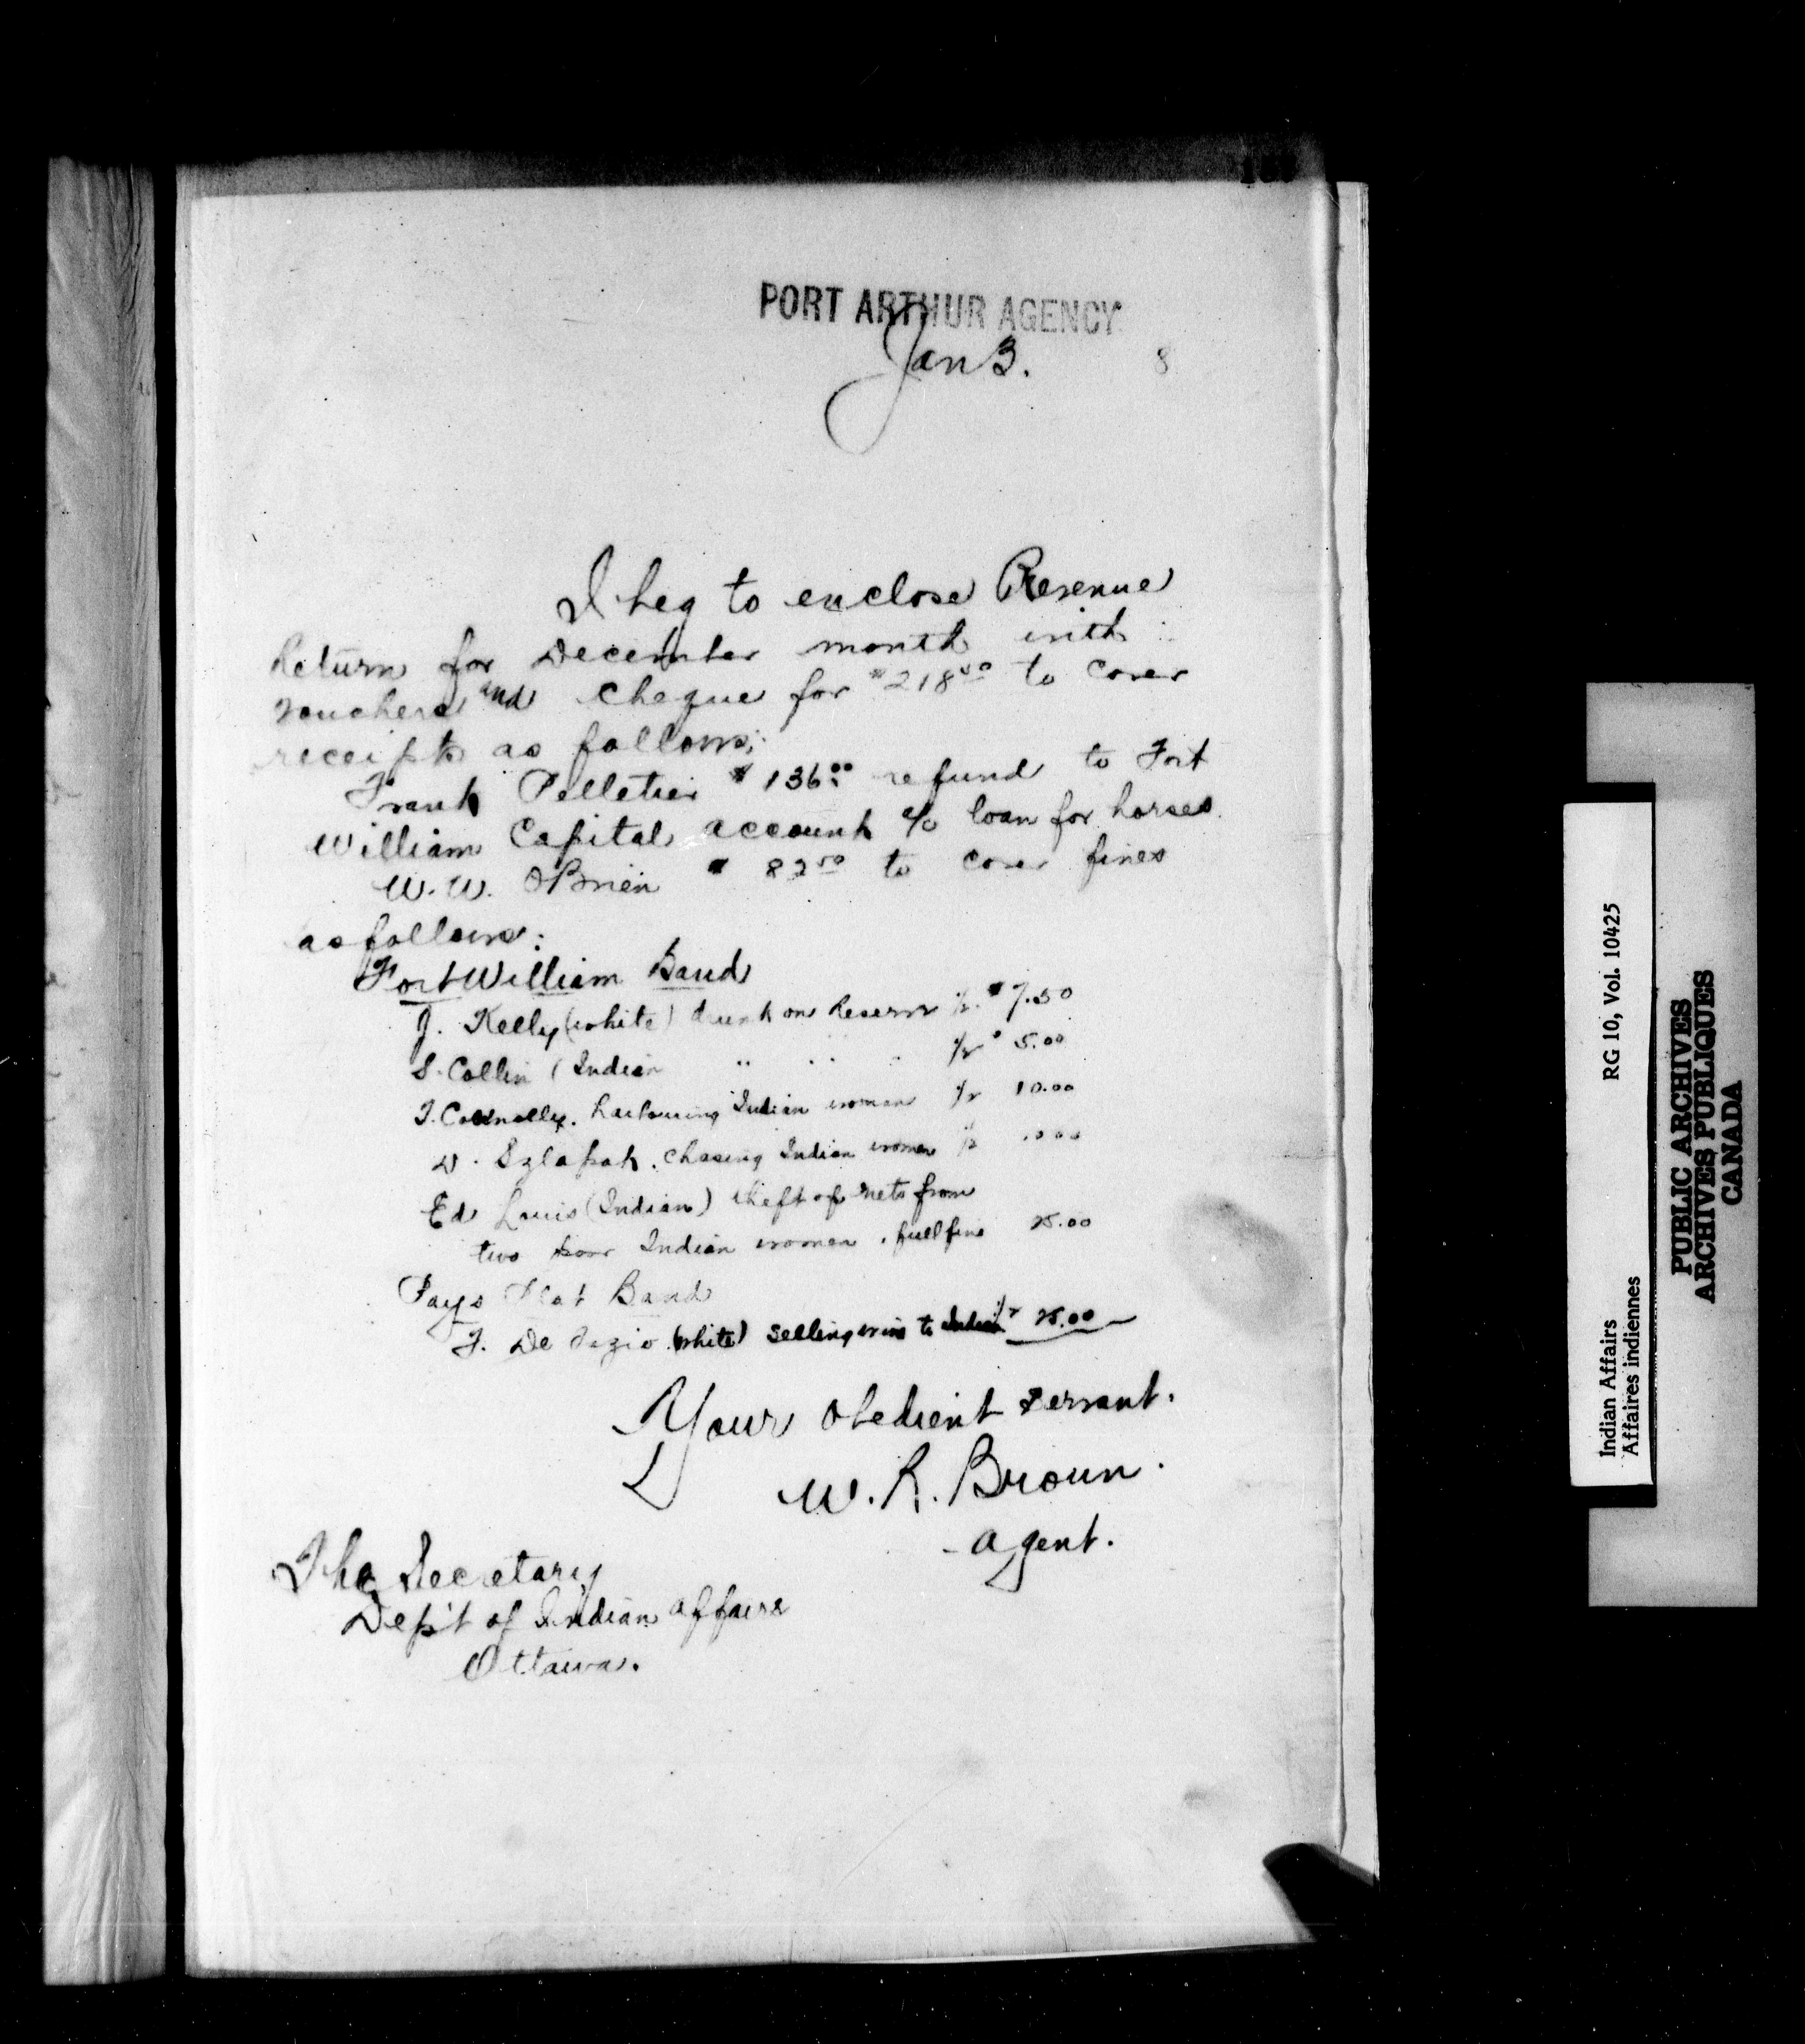 PORT ARTHUR AGENCY
Jan 3. 8
I beg to enclose Revenue
Return for December month with
vouchers and cheque for $218.50 to cover
receipts as follows;
Frank Pelletier $136.00 refund to Fort
William Capital account a/c loan for horses.
W. W. O'Brien $82.50 to cover fines
as follows:
Fort William Band
J. Kelly (white) drunk on Reserve 1/2 $7.50
S. Collin (Indian " " " 1/2 $5.00
T. Connolly. harbouring Indian woman 1/2 10.00
D. Szlapak. chasing Indian women 1/2 10.00
Ed Louis (Indian) theft of nets from
two poor Indian women, full fine 25.00
Pays Plat Band
F. De Fazio (white) selling wine to Indian 1/2 25.00
Your obedient servant.
W. R. Brown.
Agent.
The Secretary
Dep't of Indian Affairs
Ottawa.
Indian Affairs RG 10, Vol. 10425
Affaires indiennes
PUBLIC ARCHIVES
ARCHIVES PUBLIQUES
CANADA